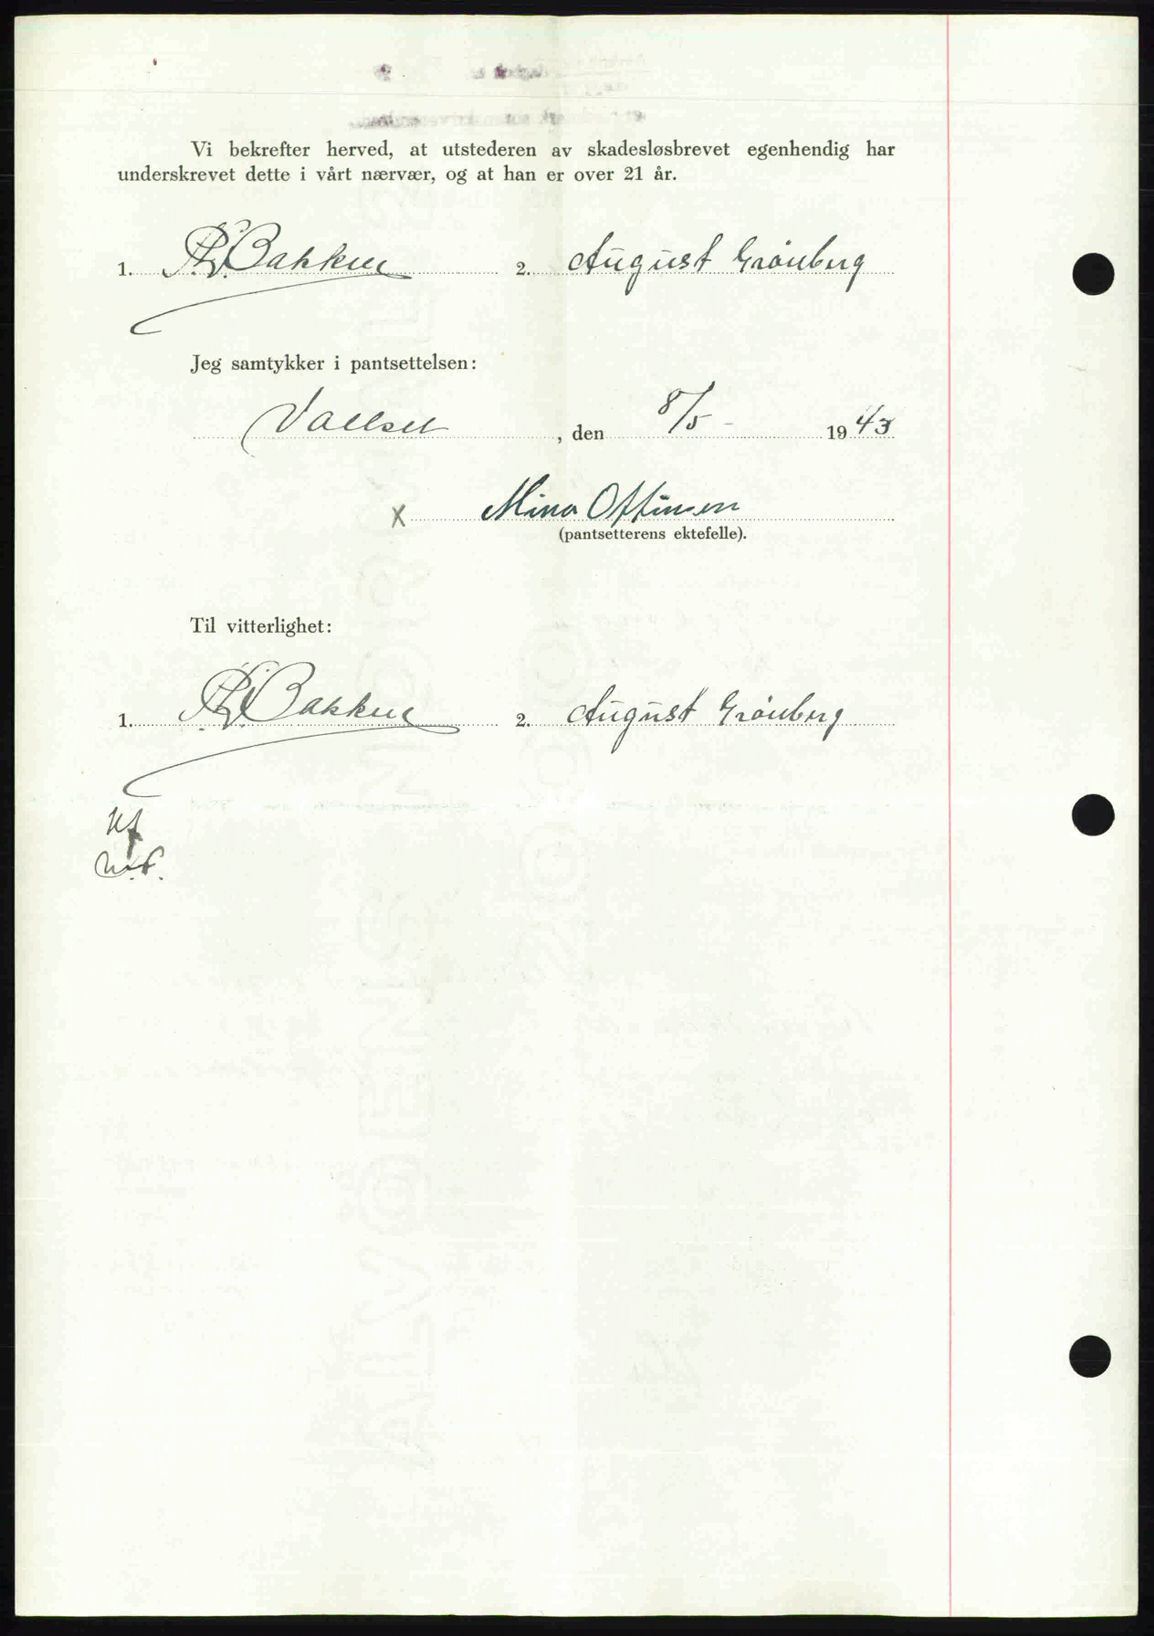 Vi bekrefter herved, at utstederen av skadesløsbrevet egenhendig har
underskrevet dette i vårt nærvær, og at han er over 21 år.
1. Bakken 2. August Grönberg
Jeg samtykker i pantsettelsen:
Vallset, den 8/5 - 1943
x Mina Offinsen
(pantsetterens ektefelle).
Til vitterlighet:
1. Bakken 2. August Grönberg